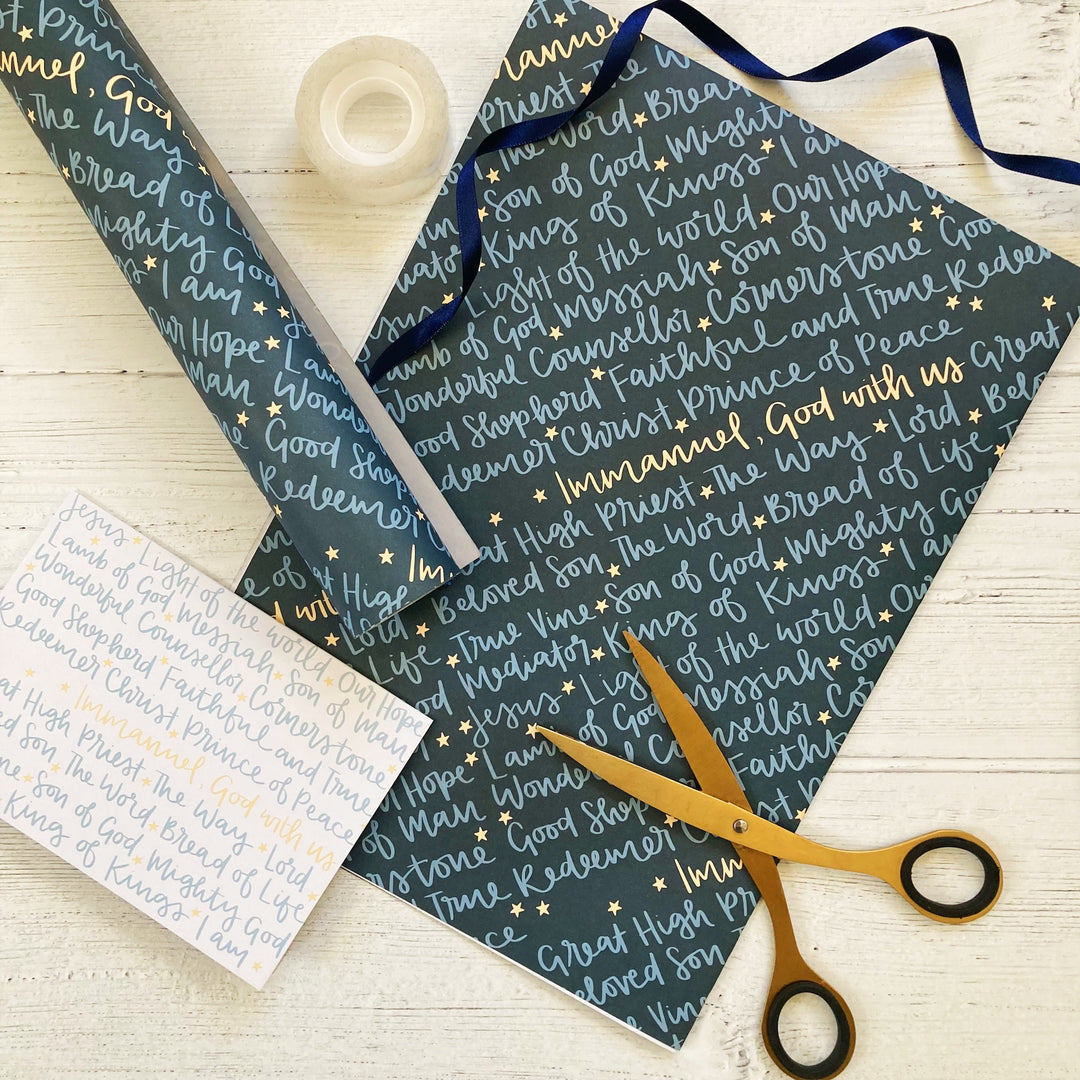 st Prince
manuel, God
The Way
Bread of L
Mighty God
gs I am
Our Hope Lamb
Man Wonde
Good Shep
Redeemer
Imm
at High
Lord
manuel
Priest The W
The Word Bread
Son of God Mighty
King of Kings I am
Light of the world Our Hope
esus Lamb of God Messiah Son of Man
Wonderful Counsellor Cornerstone Good
ood Shepherd Faithful and True Redeem
deemer Christ Prince of Peace
Immanuel, God with us Great
at High Priest The Way Lord Belo
Beloved Son The Word Bread of Life
Life True Vine Son of God Mighty God
od Mediator King of Kings I am
Jesus Light of the world Our
Hope Lamb of God Messiah Son
of Man Wonde nsellor Co
rstone Good Shep Faithfu
True Redeemer st Prin
ce Imm
Great High Pri
eloved Son
e Vine
Jesus Light of the world Our Hope
Lamb of God Messiah Son of Man
Wonderful Counsellor Cornerstone
Good Shepherd Faithful and True
Redeemer Christ Prince of Peace
Immanuel, God with us
at High Priest The Way Lord
ed Son The Word Bread of Life
ne Son of God Mighty God
King of Kings I am